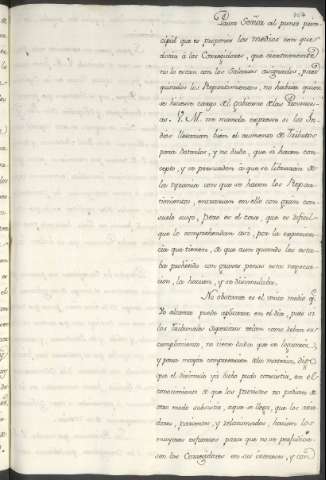 Para Señor al punto prin-
cipál que es proponer los medios con que
dotár á los Corregidores, que
no lo están con los Salarios asignados, pues
quitados los Repartimientos, no habria quien
se hiciere cargo del gobierno de las Provincias
V. M. me manda exponer si los In-
dios llevarian bien el aumento de Tributos
para dotarlos, y no dudo, que si hacen con-
cepto, y se persuaden á que se libertarán de
las tiranias con que se hacen los Repar-
timientos, entrarian en ello con gran con-
suelo suyo, pero es el caso, que es dificil
que lo comprehendan asi, por la experien-
cia que tienen, de que aun quando les esta-
ba prohibido con graves penas esta negocia-
cion, la hacian, y se disimulaba.
No obstante es el unico medio qe.
Yo alcanzo puede aplicarse en el dia, pues si
los Tribunales Superiores zelan como deben su
cumplimiento, no tiene duda que se logrará;
y para mayor comprension de la materia, digo
que el disimulo ya dicho pudo consistir, en el
conocimiento de que los provistos no podian de
otro modo subsistir, aqui se llega, que los acre-
edores, parientes, y relacionados, hacian los
mayores esfuerzos para que no se perjudica-
sen los Corregidores en sus intereses, y con